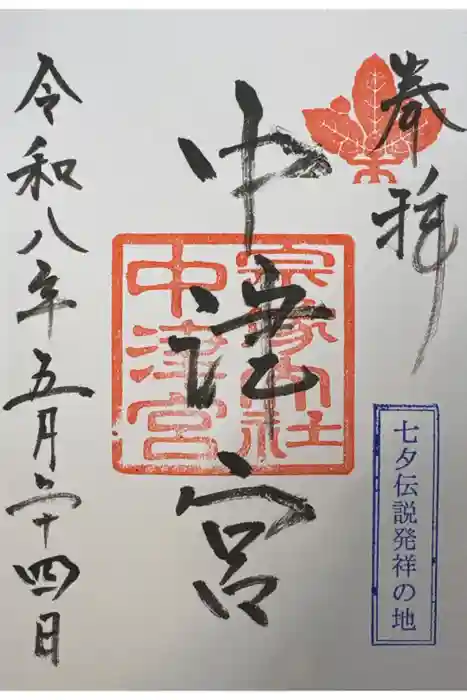 奉拝
七夕伝説発祥の地
中津宮
宗像大社
中津宮
令和八年五月二十四日